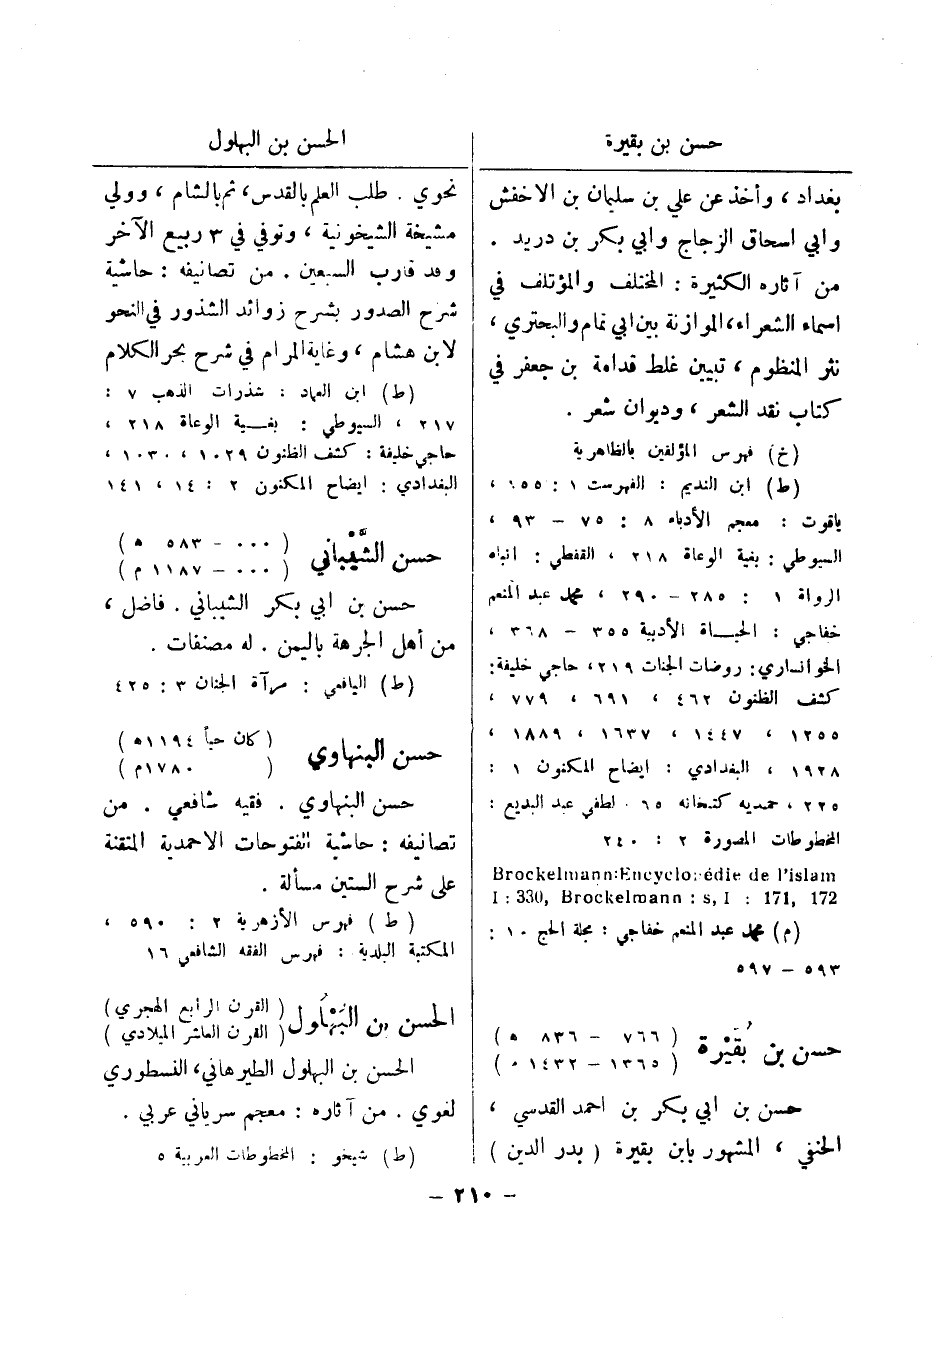 حسن بن بقيرة
بغداد ، وأخذ عن علي بن سليمان بن الاخفش
وابي اسحاق الزجاج وابي بكر بن دريد .
من آثاره الكثيرة : المختلف والمؤتلف في
اسماء الشعراء، الموازنة بين ابي تمام والبحتري ،
نثر المنظوم ، تبيين غلط قدامة بن جعفر في
كتاب نقد الشعر ، وديوان شعر .
(خ) فهرس المؤلفين بالظاهرية
(ط) ابن النديم : الفهرست ١ : ١٥٥ ،
ياقوت : معجم الأدباء ٨ : ٧٥ – ٩٣ ،
السيوطي : بغية الوعاة ٢١٨ ، القفطي : انباه
الرواة ١ : ٢٨٥ – ٢٩٠ ، محمد عبد المنعم
خفاجي : الحيـــاة الأدبية ٣٥٥ – ٣٦٨ ،
الخوانساري : روضات الجنات ٢١٩، حاجي خليفة:
كشف الظنون ٤٦٢ ، ٦٩١ ، ٧٧٩ ،
١٢٥٥ ، ١٤٤٧ ، ١٦٣٧ ، ١٨٨٩ ،
١٩٢٨ ، البغدادي : ايضاح المكنون ١ :
٢٢٥ ، حميديه كتبخانه ٦٥ . لطفي عبد البديع :
المخطوطات المصورة ٢ : ٢٤٠
Brockelmann:Encyclopédie de l'islam
I : 330, Brockelmann : s, I : 171, 172
(م) محمد عبد المنعم خفاجي : مجلة الحج ١٠ :
٥٩٣ – ٥٩٧
حسن بن بُقَيْرة ( ٧٦٦ – ٨٣٦ ه )
( ١٣٦٥ – ١٤٣٢ م )
حسن بن ابي بكر بن احمد القدسي ،
الحنفي ، المشهور بابن بقيرة ( بدر الدين )
الحسن بن البهلول
نحوي . طلب العلم بالقدس، ثم بالشام ، وولي
مشيخة الشيخونية ، وتوفي في ٣ ربيع الآخر
وقد قارب السبعين . من تصانيفه : حاشية
شرح الصدور بشرح زوائد الشذور في النحو
لابن هشام ، وغاية المرام في شرح بحر الكلام
(ط) ابن العماد : شذرات الذهب ٧ :
٢١٧ ، السيوطي : بغـــية الوعاة ٢١٨ ،
حاجي خليفة : كشف الظنون ١٠٢٩ ، ١٠٣٠ ،
البغدادي : ايضاح المكنون ٢ : ١٤ ، ١٤١
حسن الشَّيْباني ( ٠٠٠ – ٥٨٣ ه )
( ٠٠٠ – ١١٨٧ م )
حسن بن ابي بكر الشيباني . فاضل ،
من أهل الجرهة باليمن . له مصنفات .
(ط) اليافعي : مرآة الجنان ٣ : ٤٢٥
حسن البنهاوي ( كان حياً ١١٩٤ه )
( ١٧٨٠م )
حسن البنهاوي . فقيه شافعي . من
تصانيفه : حاشية الفتوحات الاحمدية المتقنة
على شرح الستين مسألة .
( ط ) فهرس الأزهرية ٢ : ٥٩٠ ،
المكتبة البلدية : فهرس الفقه الشافعي ١٦
الحسن بن البَهْلُول ( القرن الرابع الهجري )
( القرن العاشر الميلادي )
الحسن بن البهلول الطيرهاني، النسطوري
لغوي . من آثاره : معجم سرياني عربي .
(ط) شيخو : المخطوطات العربية ٥
– ٢١٠ –